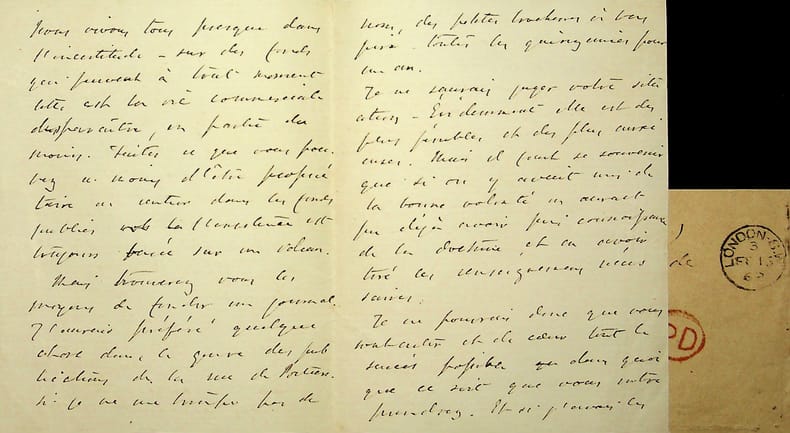 Nous vivons tous presque dans
l'incertitude - sur des fonds
qui peuvent à tout moment
telle est la vie commerciale
disparaître, en partie du
moins. Faites ce que vous pou
vez à moins d'être proprié
taire ou rentier dans les fonds
publics est
toujours basée sur un volcan.
Mais trouverez vous les
moyens de fonder un journal.
J'aurais préféré quelque
chose dans le genre des pub
lications de la rue de Poitiers.
si je ne me trompe pas de
nom, des petites brochures à bas
prix toutes les quinzaines pour
un an.
Je ne saurais juger votre situ
ation - Evidemment elle est des
plus pénibles et des plus
Mais il faut se souvenir
que si on y avait mis de
la bonne volonté on aurait
pu déjà avoir pris connaissance
de la doctrine et en avoir
tiré les enseignements néces
saires.
Je ne pourrais donc que vous
souhaiter et de cœur tout le
succès possible dans quoi
que ce soit que vous entre
prendrez. Et si j'avais les
de
LONDON-S.W
3
FE 13
PD